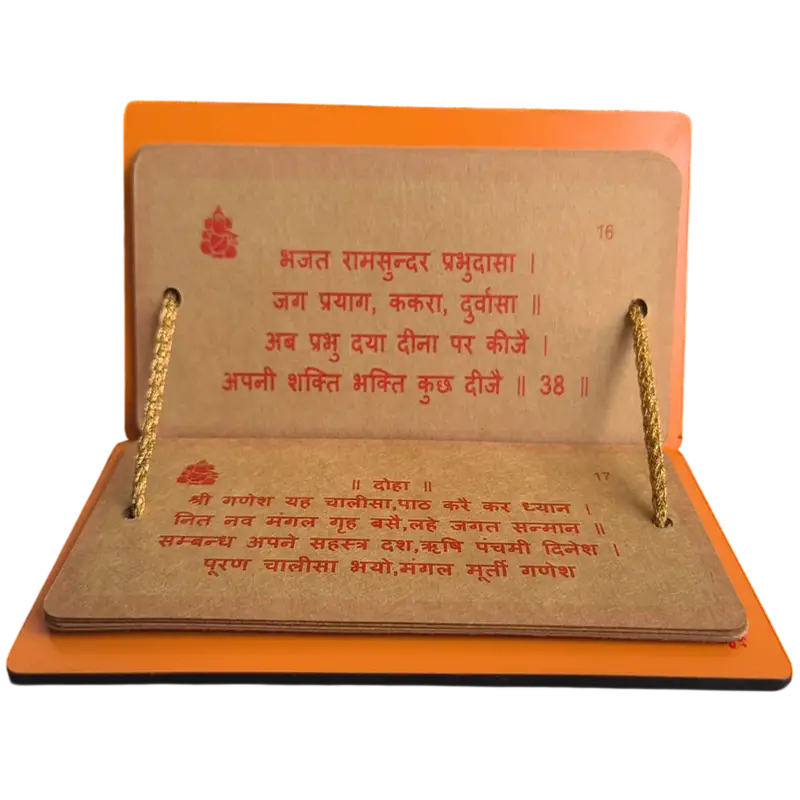 16
भजत रामसुन्दर प्रभुदासा ।
जग प्रयाग, ककरा, दुर्वासा ॥
अब प्रभु दया दीना पर कीजै ।
अपनी शक्ति भक्ति कुछ दीजै ॥ 38 ॥
17
॥ दोहा ॥
श्री गणेश यह चालीसा,पाठ करै कर ध्यान ।
नित नव मंगल गृह बसै,लहे जगत सन्मान ॥
सम्बन्ध अपने सहस्त्र दश,ऋषि पंचमी दिनेश ।
पूरण चालीसा भयो,मंगल मूर्ती गणेश